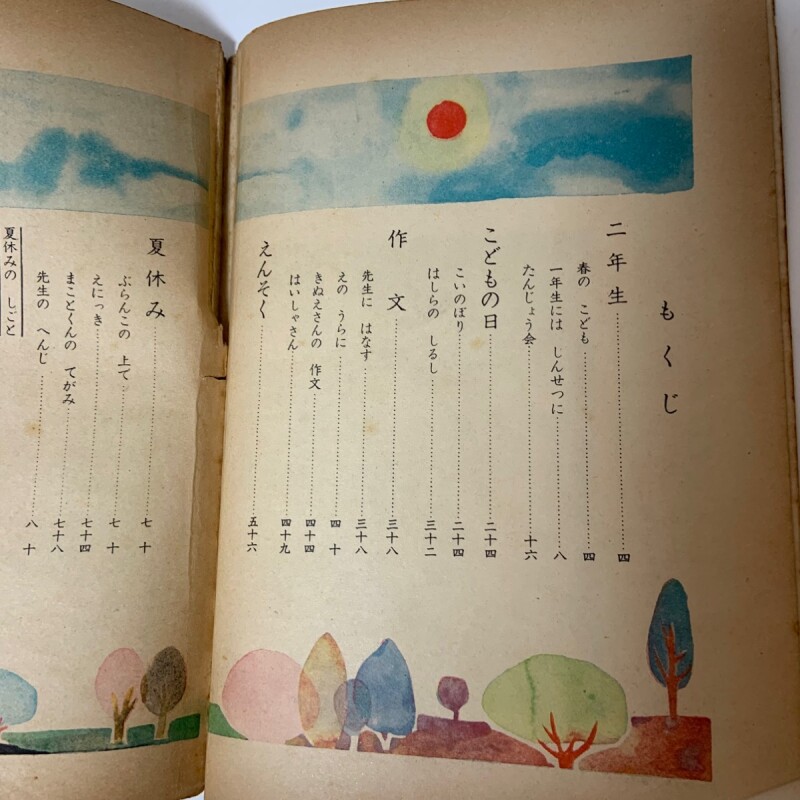 もくじ
二年生……四
春の こども……四
一年生には しんせつに……八
たんじょう会……十六
こどもの日……二十四
こいのぼり……二十四
はしらの しるし……三十二
作文……三十八
先生に はなす……三十八
えの うらに……四十
きぬえさんの 作文……四十四
はいしゃさん……四十九
えんそく……五十六
夏休み……七十
ぶらんこの 上で……七十
えにっき……七十四
まことくんの てがみ……七十八
先生の へんじ……八十
夏休みの しごと